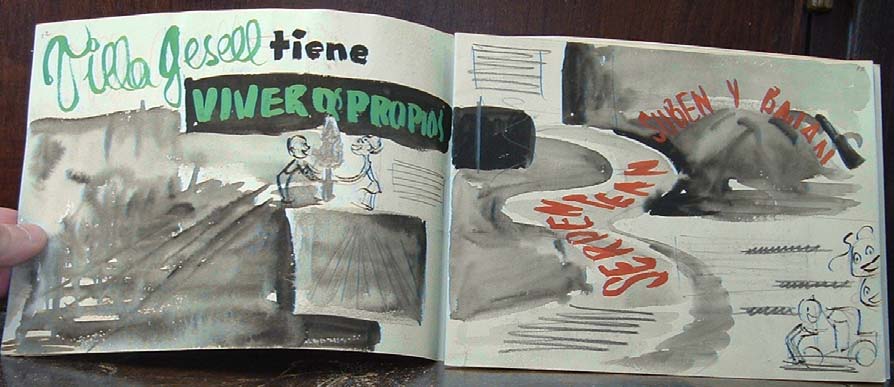 Villa Gesell tiene
VIVEROS PROPIOS
SUBEN Y BAJAN
SERPENTEAN